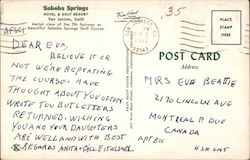 Soboba Springs
HOTEL & GOLF RESORT
San Jacinto, Calif.
Aerial view of the 7th fairway at
beautiful Soboba Springs Golf Course.
35
DEAR EVA,
BELIEVE IT OR
NOT WE'RE REPEATING
THE COURSE! HAVE
THOUGHT ABOUT YOU OFTEN,
WROTE TOO BUT LETTERS
RETURNED. WISHING
YOU AND YOUR DAUGHTERS
ARE WELL AND WITH BEST
REGARDS ANITA & BILL
POST CARD
Address
MRS EVA BEATTIE
2170 LINCOLN AVE
MONTREAL P QUE
CANADA
APT 201